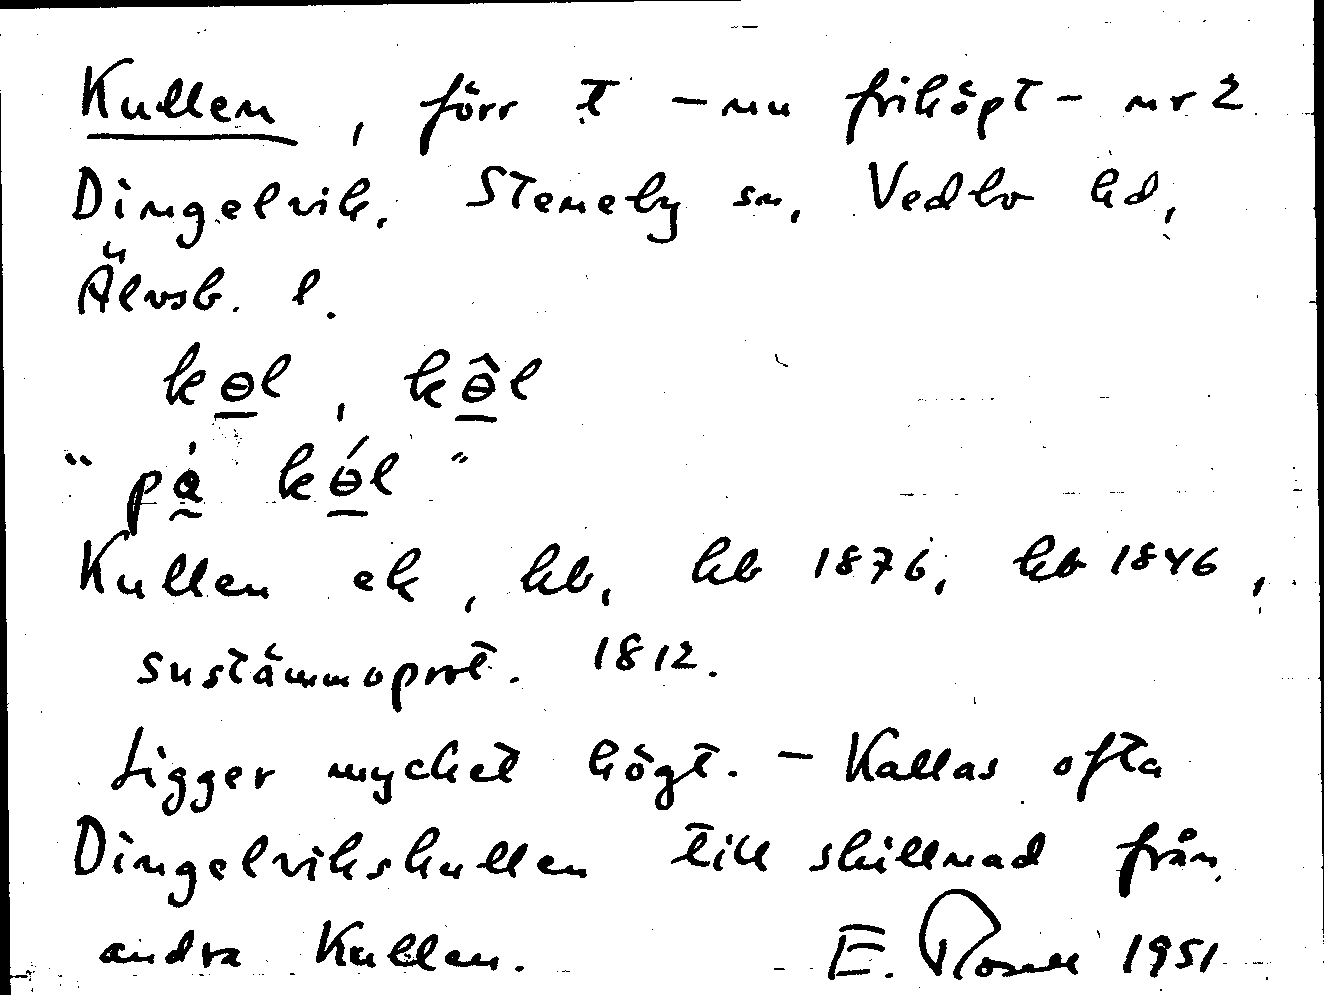 Kullen, förr t - nu friköpt - nr 2
Dingelvik, Steneby sn, Vedbo hd,
Älvsb. l.
kɵl, kɵ̂l
"på kɵ́l"
Kullen ek, kb, hb 1876, kb 1846,
sustämmoprot. 1812.
Ligger mycket högt. - Kallas ofta
Dingelvikskullen till skillnad från
andra Kullen. E. Rosell 1951